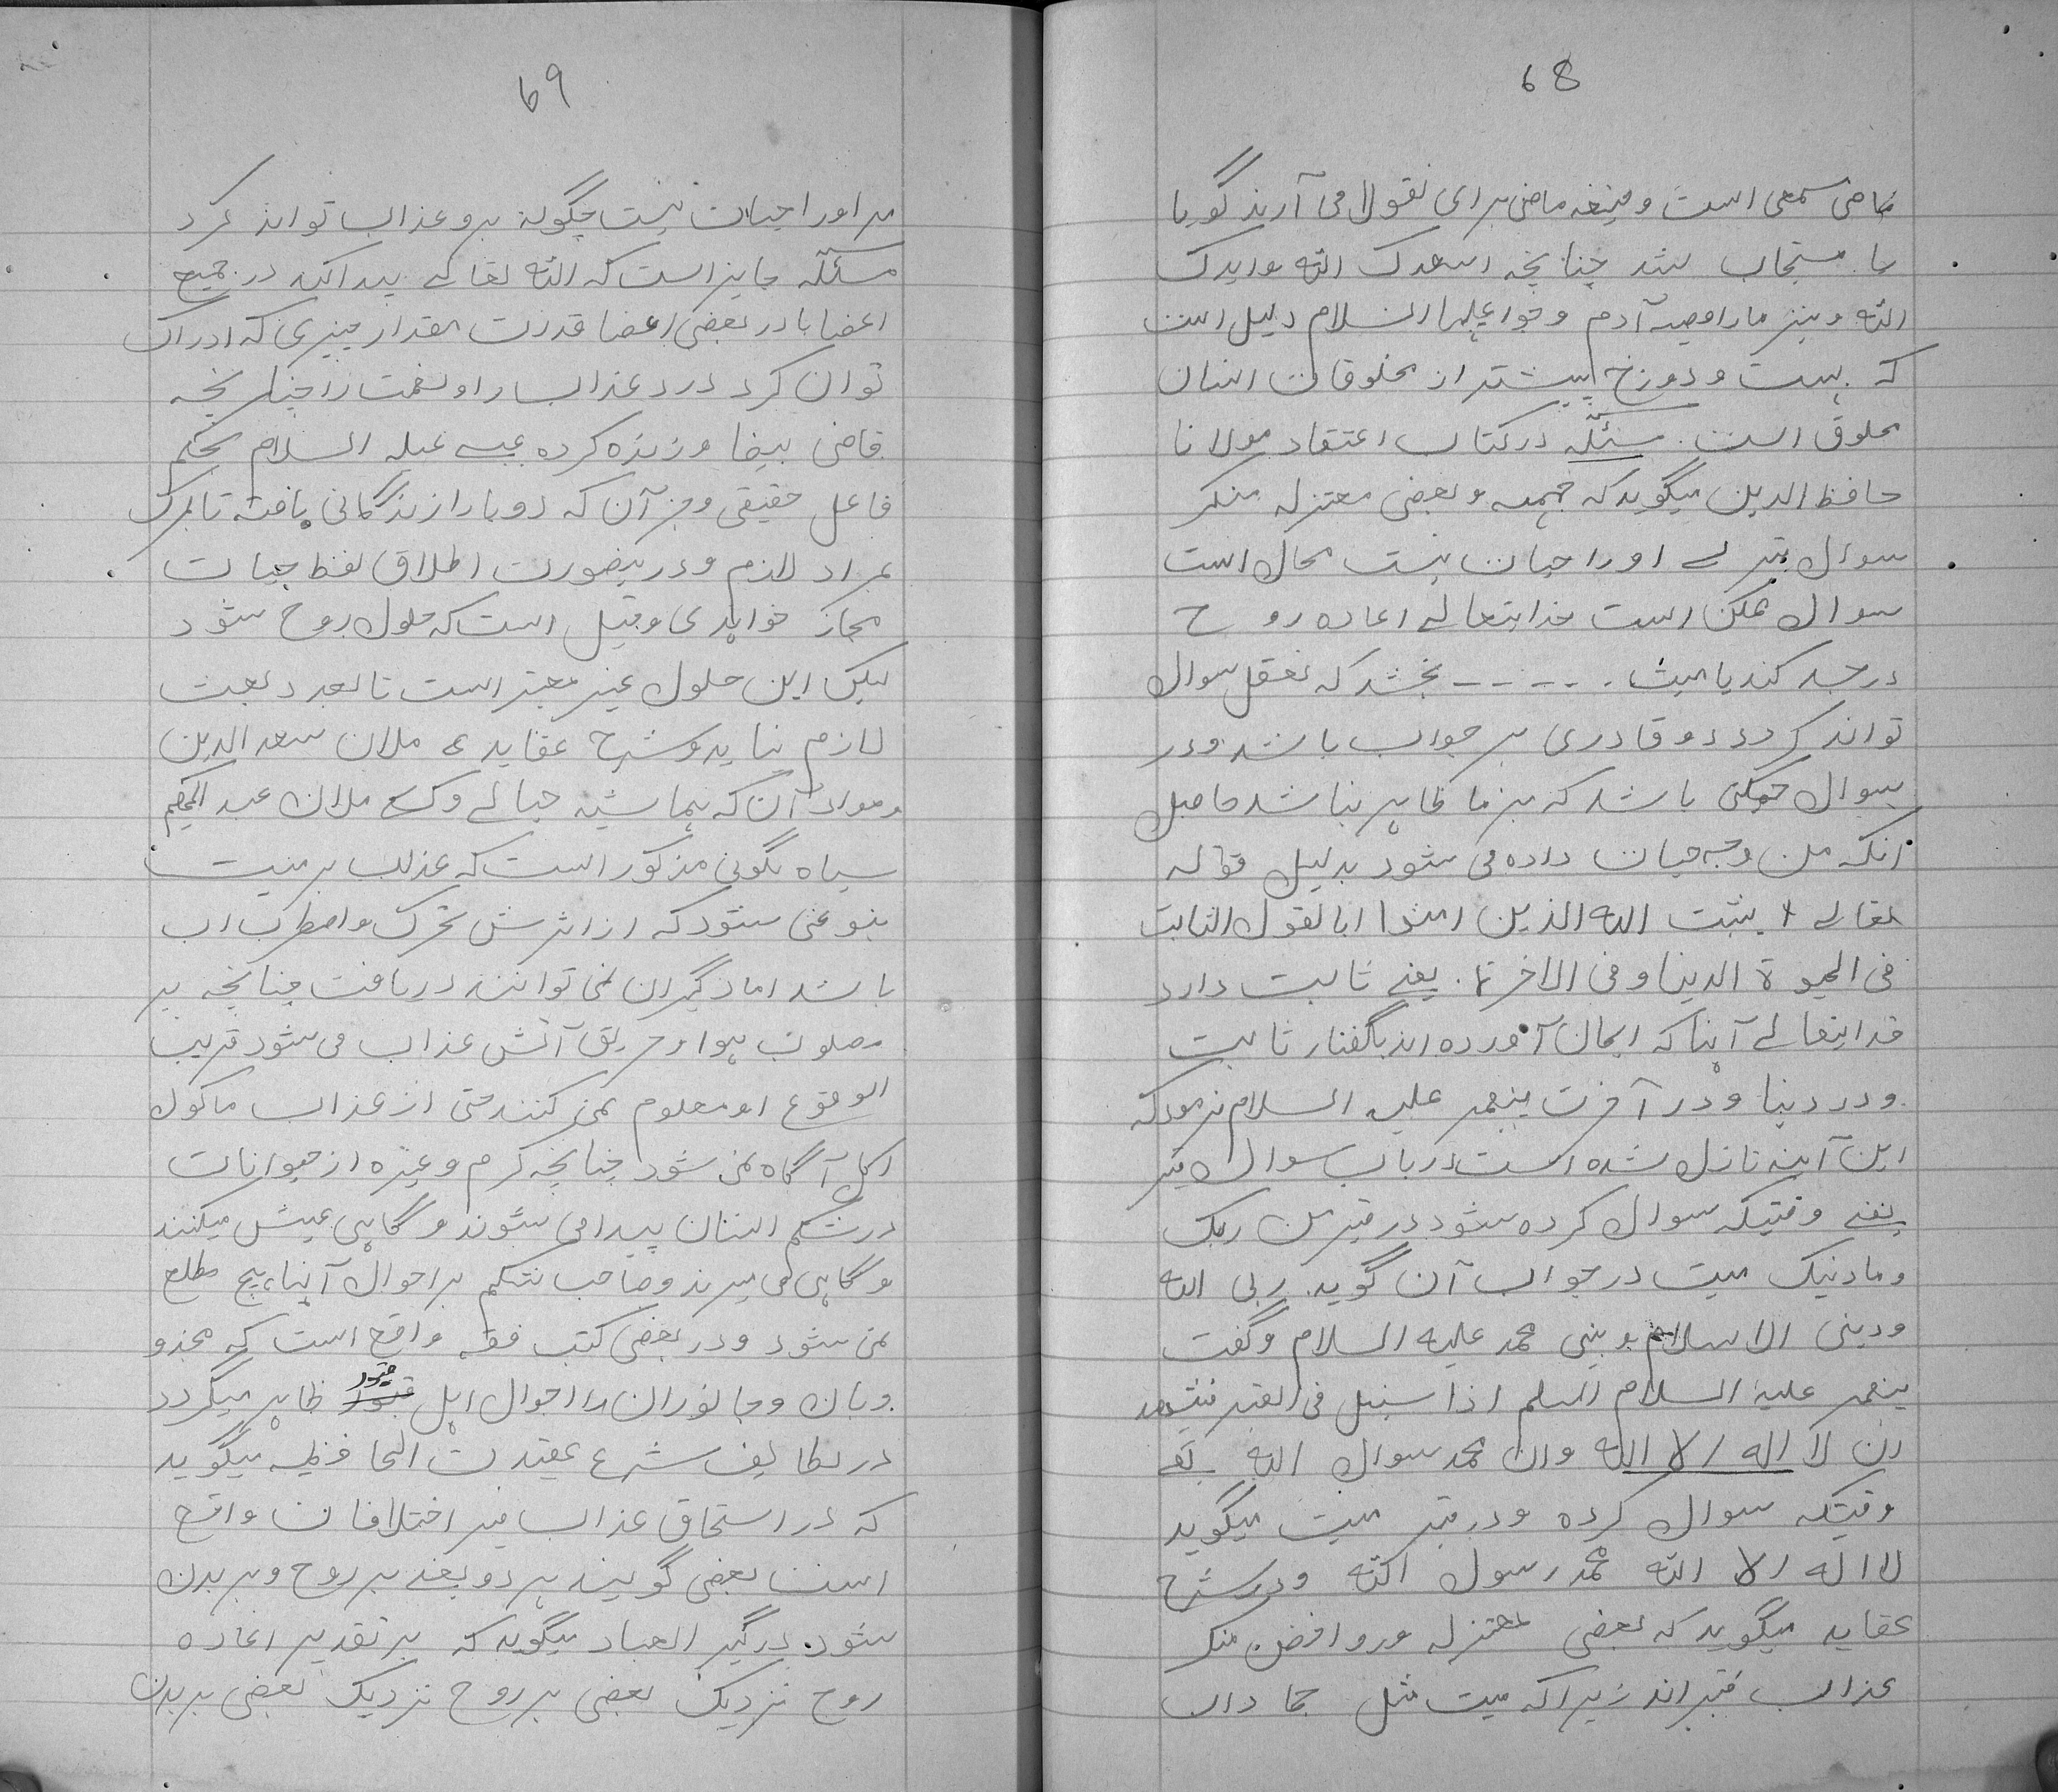 68
ماضی سمعی است و صیغه ماضی برای تفول می آرند گویا
با مستجاب شد چنانچه اسعدک الله و ایدک
الله و نیز ما را قصه آدم و حوا علیهما السلام دلیل است
که بهشت و دوزخ پیشتر از مخلوقات انسان
مخلوق است. مسئله در کتاب اعتقاد مولانا
حافظ الدین میگوید که جهمیه و بعضی معتزله منکر
سوال قبر او را حیات نیست محال است
سوال ممکن است خدایتعالے اعاده روح
در جسد کند یا میت ------ بخشد که تعقل سوال
تواند کردد و قادری بر جواب باشد و در
سوال حمکتی باشد که بر ما ظاهر نباشد حاصل
آنکه من وجه حیات داده می شود بدلیل قوله
تعالے یثبت الله الذین امنوا ابالقول الثابت
فی الحیوة الدینا و فی الاخرة. یعنے ثابت دارد
خدایتعالے آنها که ایمان آورده اند بگفتار ثابت
و در دینا و در آخرت پیغمبر علیه السلام فرمود که
این آیه نازل شده است در باب سوال قبر
یعنے وقتیکه سوال کرده شود در قبر من ربک
و مادنیک میت در جواب آن گوید. ربی الله
و دینی الاسلام و نبی محمد علیه السلام و گفت
پیغمبر علیه السلام المسلم اذا سئل فی القبر فیشهد
ان لا اله الا الله وان محمد سوال الله یعنے
وقیتکه سوال کرده و در قبر میت میگوید
لا اله الا الله محمد رسول الله و در شرح
عقاید میگوید که بعضی معتزله و روافض منکر
عذاب قبر اند زیرا که میت مثل جماد اب
69
مر او را حیات نیست چگونه بر و عذاب تواند کرد
مسئله جایز است که الله تعالے پیدا کند در جمیع
اعضا یا در بعضی اعضا قدرت مقدار چیزی که ادراک
توان کرد درد عذاب را و نعمت را چنانچه
قاضی بیضا و زنده کرده عیسے علیه السلام بحکم
فاعل حقیقی و جز آن که دوبار از زندگانی یافته تا بمرگ
مراد لازم و درینصورت اطلاق لفظ حیات
مجاز خواهدی و قیل است که حلول روح شود
لیکن این حلول غیر معتبر است تا بعد بعث
لازم نیاید و شرح عقایدے ملان سعد الدین
و مواد آن که بهاشیه خیالے و ملان عبد الحکیم
سیاه لگوتی مذکور است که عذاب بر میت
بنوعی شود که از اثرش تحرک و اضطراب
باشد اما دگیران نمی توانند دریافت چنانچه بر
مصلوب هوا و حریق آتش عذاب می شود قریب
الوقوع او معلوم نمی کنند حتی از عذاب ماکول
اکل آگاه نمی شود چنانچه کرم و غیره از حیوانات
در شکم انسان پیدا می شوند و گاهی عیش میکنند
و گاهی می میرند و صاحب شکم بر احوال آنها هیچ مطلع
نمی شود و در بعضی کتب فقه واقع است که مجذو
وبان و جانوران را احوال اهل قبور ظاهر میگردد
در لطایف شرع عقیدت الحافظیه میگوید
که در استحاق عذاب قبر اختلافات واقع
است بعضی گویند بر دو یعنے بر روح و بر بدن
شود. دیگر العباد میگوید که بر تقدیر اعاده
روح نزدیک بعضی بر روح نزدیک بعضی بر بدن